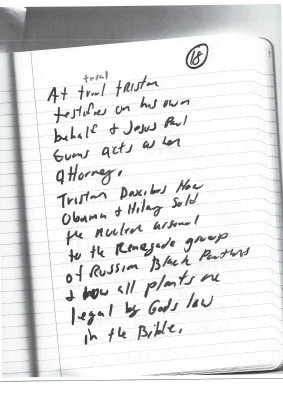 18
trial
At trial tristan
testifies on his own
behalf & Jesus Paul
Evans acts as her
attorney.
Tristan Describes How
Obama & Hilary Sold
the nuclear arsenal
to the Renegade group
of Russian Black Panthers
& how all plants are
legal by Gods law
in the Bible.